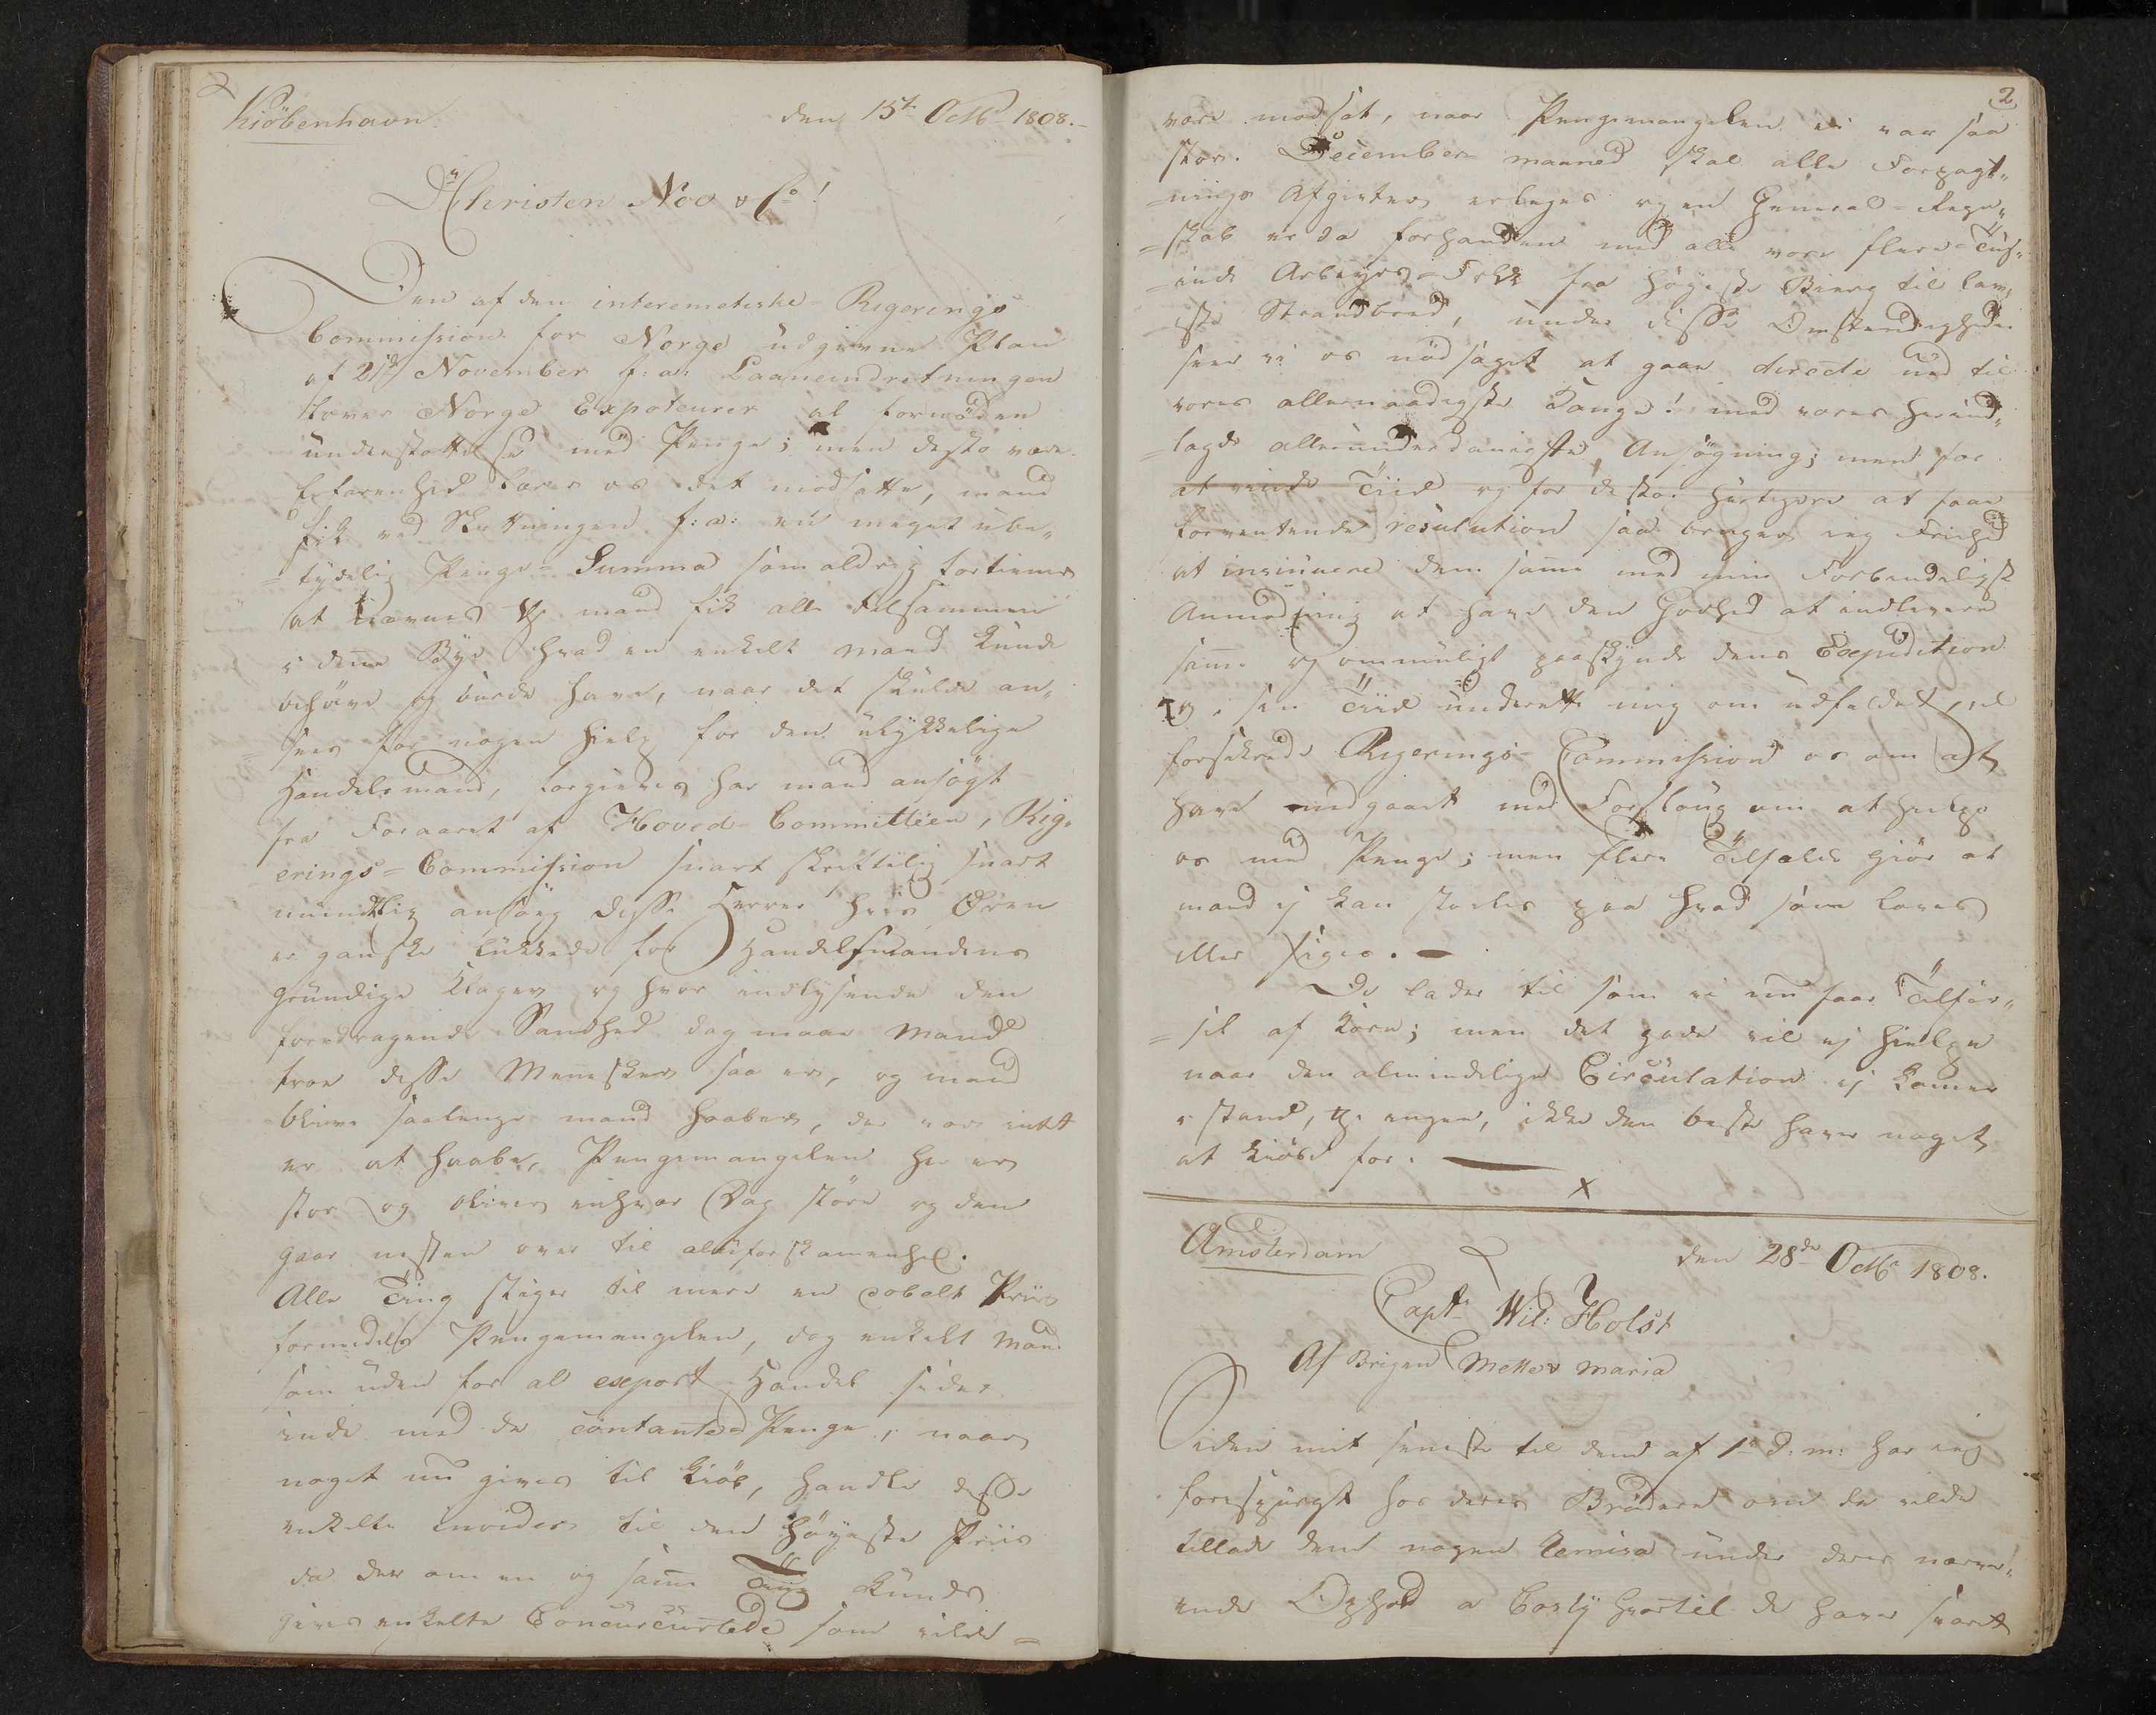 Kiöbenhavn den 15de Octbr 1808.
Hr Christen Noo & Co!
Den af den interemetiske Rigerings
Commission for Norge udgivne Plan
af 21de November f: a: Laaneindretningen
lover Norge Expoteurer al fornøden
understøttelse med Penge; men desto være
Erfarenhed lærer os det modsatte, mand
fik ved Skattningen f: a: en meget ube„
=tydelig Penge-Summa som aldrig fortiener
at nævnes thj mand fik alle tilsammen
i denne Bye hvad en enkelt mand kunde
behöve og burde have, naar det skulde an„
=sees for nogen hielp for den ulykkelige
Handelsmand, forgieves har mand ansögt
fra Foraaret af Hoved-Committéen, Rig„
erings=Commission snart skriftelig snart
mundtlig ansöeg disse Herrer hvis Øren
er ganske lukkede for Handelsmandens
grundige Klager og hvor indlysende den
foredragende Sandhed dog maae Mand
troe disse Mennesker saa er, og mand
blive saalenge mand haaber, der var intet
er at haabe, Pengemangelen her er
stor og bliver enhver Dag större og den
gaar nesten over til
Alle Ting stiger til mere en dobelt Priis
formedelst Pengemangelen, dog enkelt Mand
som uden for al export-Handel sider
inde med de contante Penge, naar
noget nu gives til Kiöb, handle disse
enkelte invider til den höyeste Priis
da der om en og samme Ting kunde
gives enkelte Concurcurtede som vilde=
2
være modsat, naar Pengemangelen ei var saa
stor. December maaned skal alle Forpagt„
=nings Afgivter erleges og en General-Regn„
=skab er da forhanden med alle vore flere Tus„
=inde Arbeyds-Folk fra höyeste Bierg til lav„
=este Strandbred, under disse Omstendigheder
seer vi os nödsaget at gaae directe ind til
vores allernaadigste Konge! med vores herind„
=lagde allerunderdanigste Ansögning; men for
at vinde Tiid og for desto hurtigere at faae
forventende resulution saa bruger ieg Friehed
at insinuere dem samme med min Forbendeligst
Anmodning at have den Godhed at indlevere
samme og ommuligt paaskynde dens Expedition
og i sin Tiid underrette mig om udfaldet, vel
forsikrede Rigerings-Commission os om at
have indgaaet med Forslaug om at hielpe
os med Penge; men flere Tilfælde giör at
mand ej kan stoeles paa hvad som loves
eller siges.
De lader til som vi nu faar Tilför„
=sel af Korn; men det gode vil ej hielpe
naar den almindelige Circulation ej komer
i stand, thi ingen, ikke den beste haver noget
at kiöbe for.
Amsterdam den 28de Octbr 1808.
Capt. Wil: Holst
Af Brigen Mette & Maria
Siden mit seneste til dem af 1de d: m: har ieg
forespurgt hos deres Brödere om de vilde
tillade dem nogen Remisa under deres nærvæ„
ende Ophold a hvortil de haver svaret